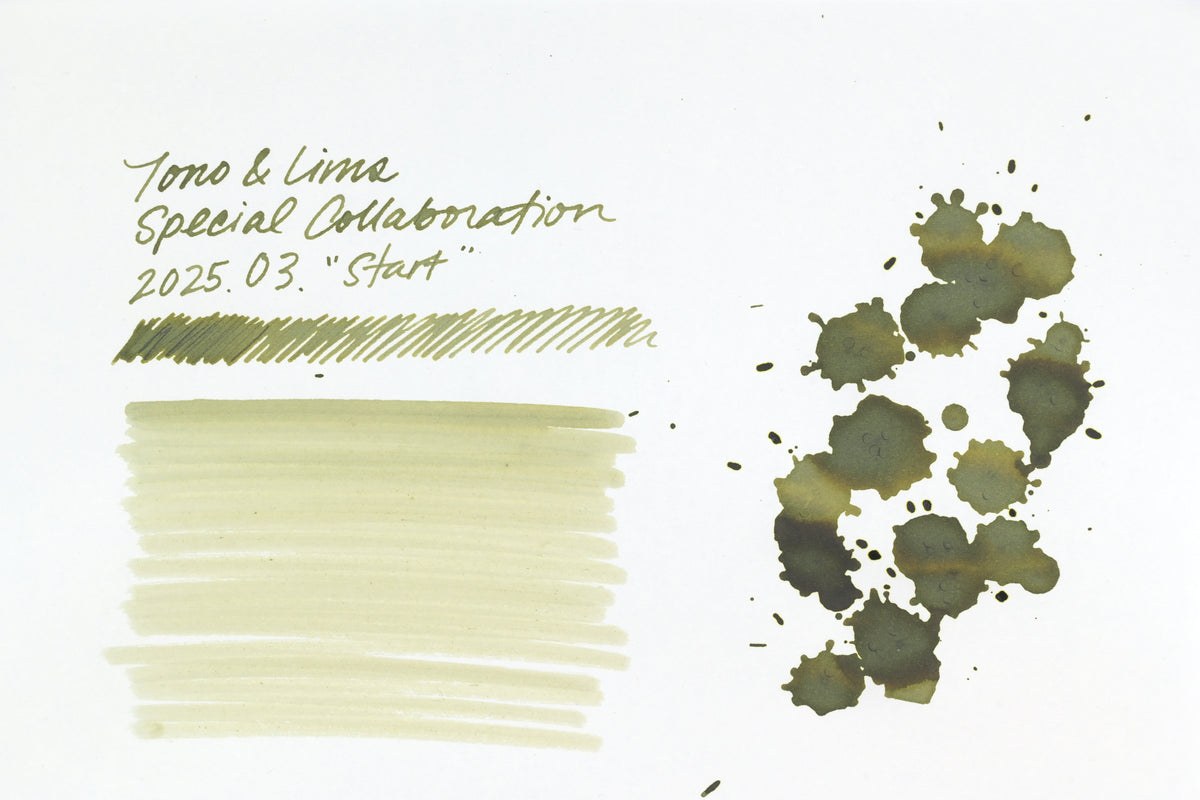 Tono & Lims
Special Collaboration
2025. 03. "Start"